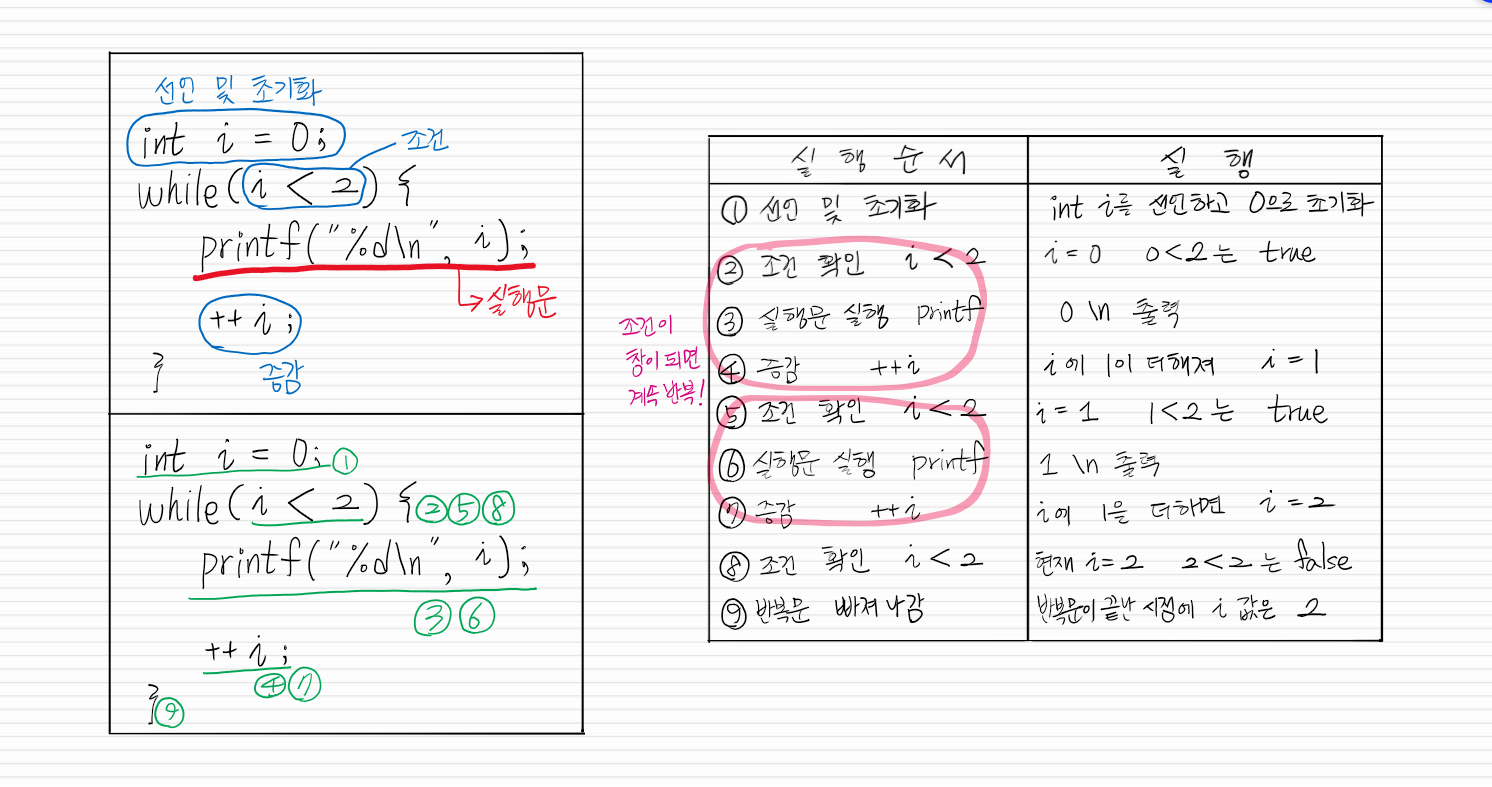 선언 및 초기화
int i = 0;
조건
while(i < 2) {
printf("%d\n", i);
실행문
++i;
}
증감
int i = 0; ①
while(i < 2) { ② ⑤ ⑧
printf("%d\n", i);
③ ⑥
++i;
④ ⑦
}
⑨
조건이
참이 되면
계속 반복!
실행 순서 실행
① 선언 및 초기화 int i를 선언하고 0으로 초기화
② 조건 확인 i < 2 i = 0 0<2는 true
③ 실행문 실행 printf 0 \n 출력
④ 증감 ++i i에 1이 더해져 i = 1
⑤ 조건 확인 i < 2 i = 1 1<2는 true
⑥ 실행문 실행 printf 1 \n 출력
⑦ 증감 ++i i에 1을 더하면 i = 2
⑧ 조건 확인 i < 2 현재 i = 2 2<2는 false
⑨ 반복문 빠져나감 반복문이 끝난 시점에 i 값은 2